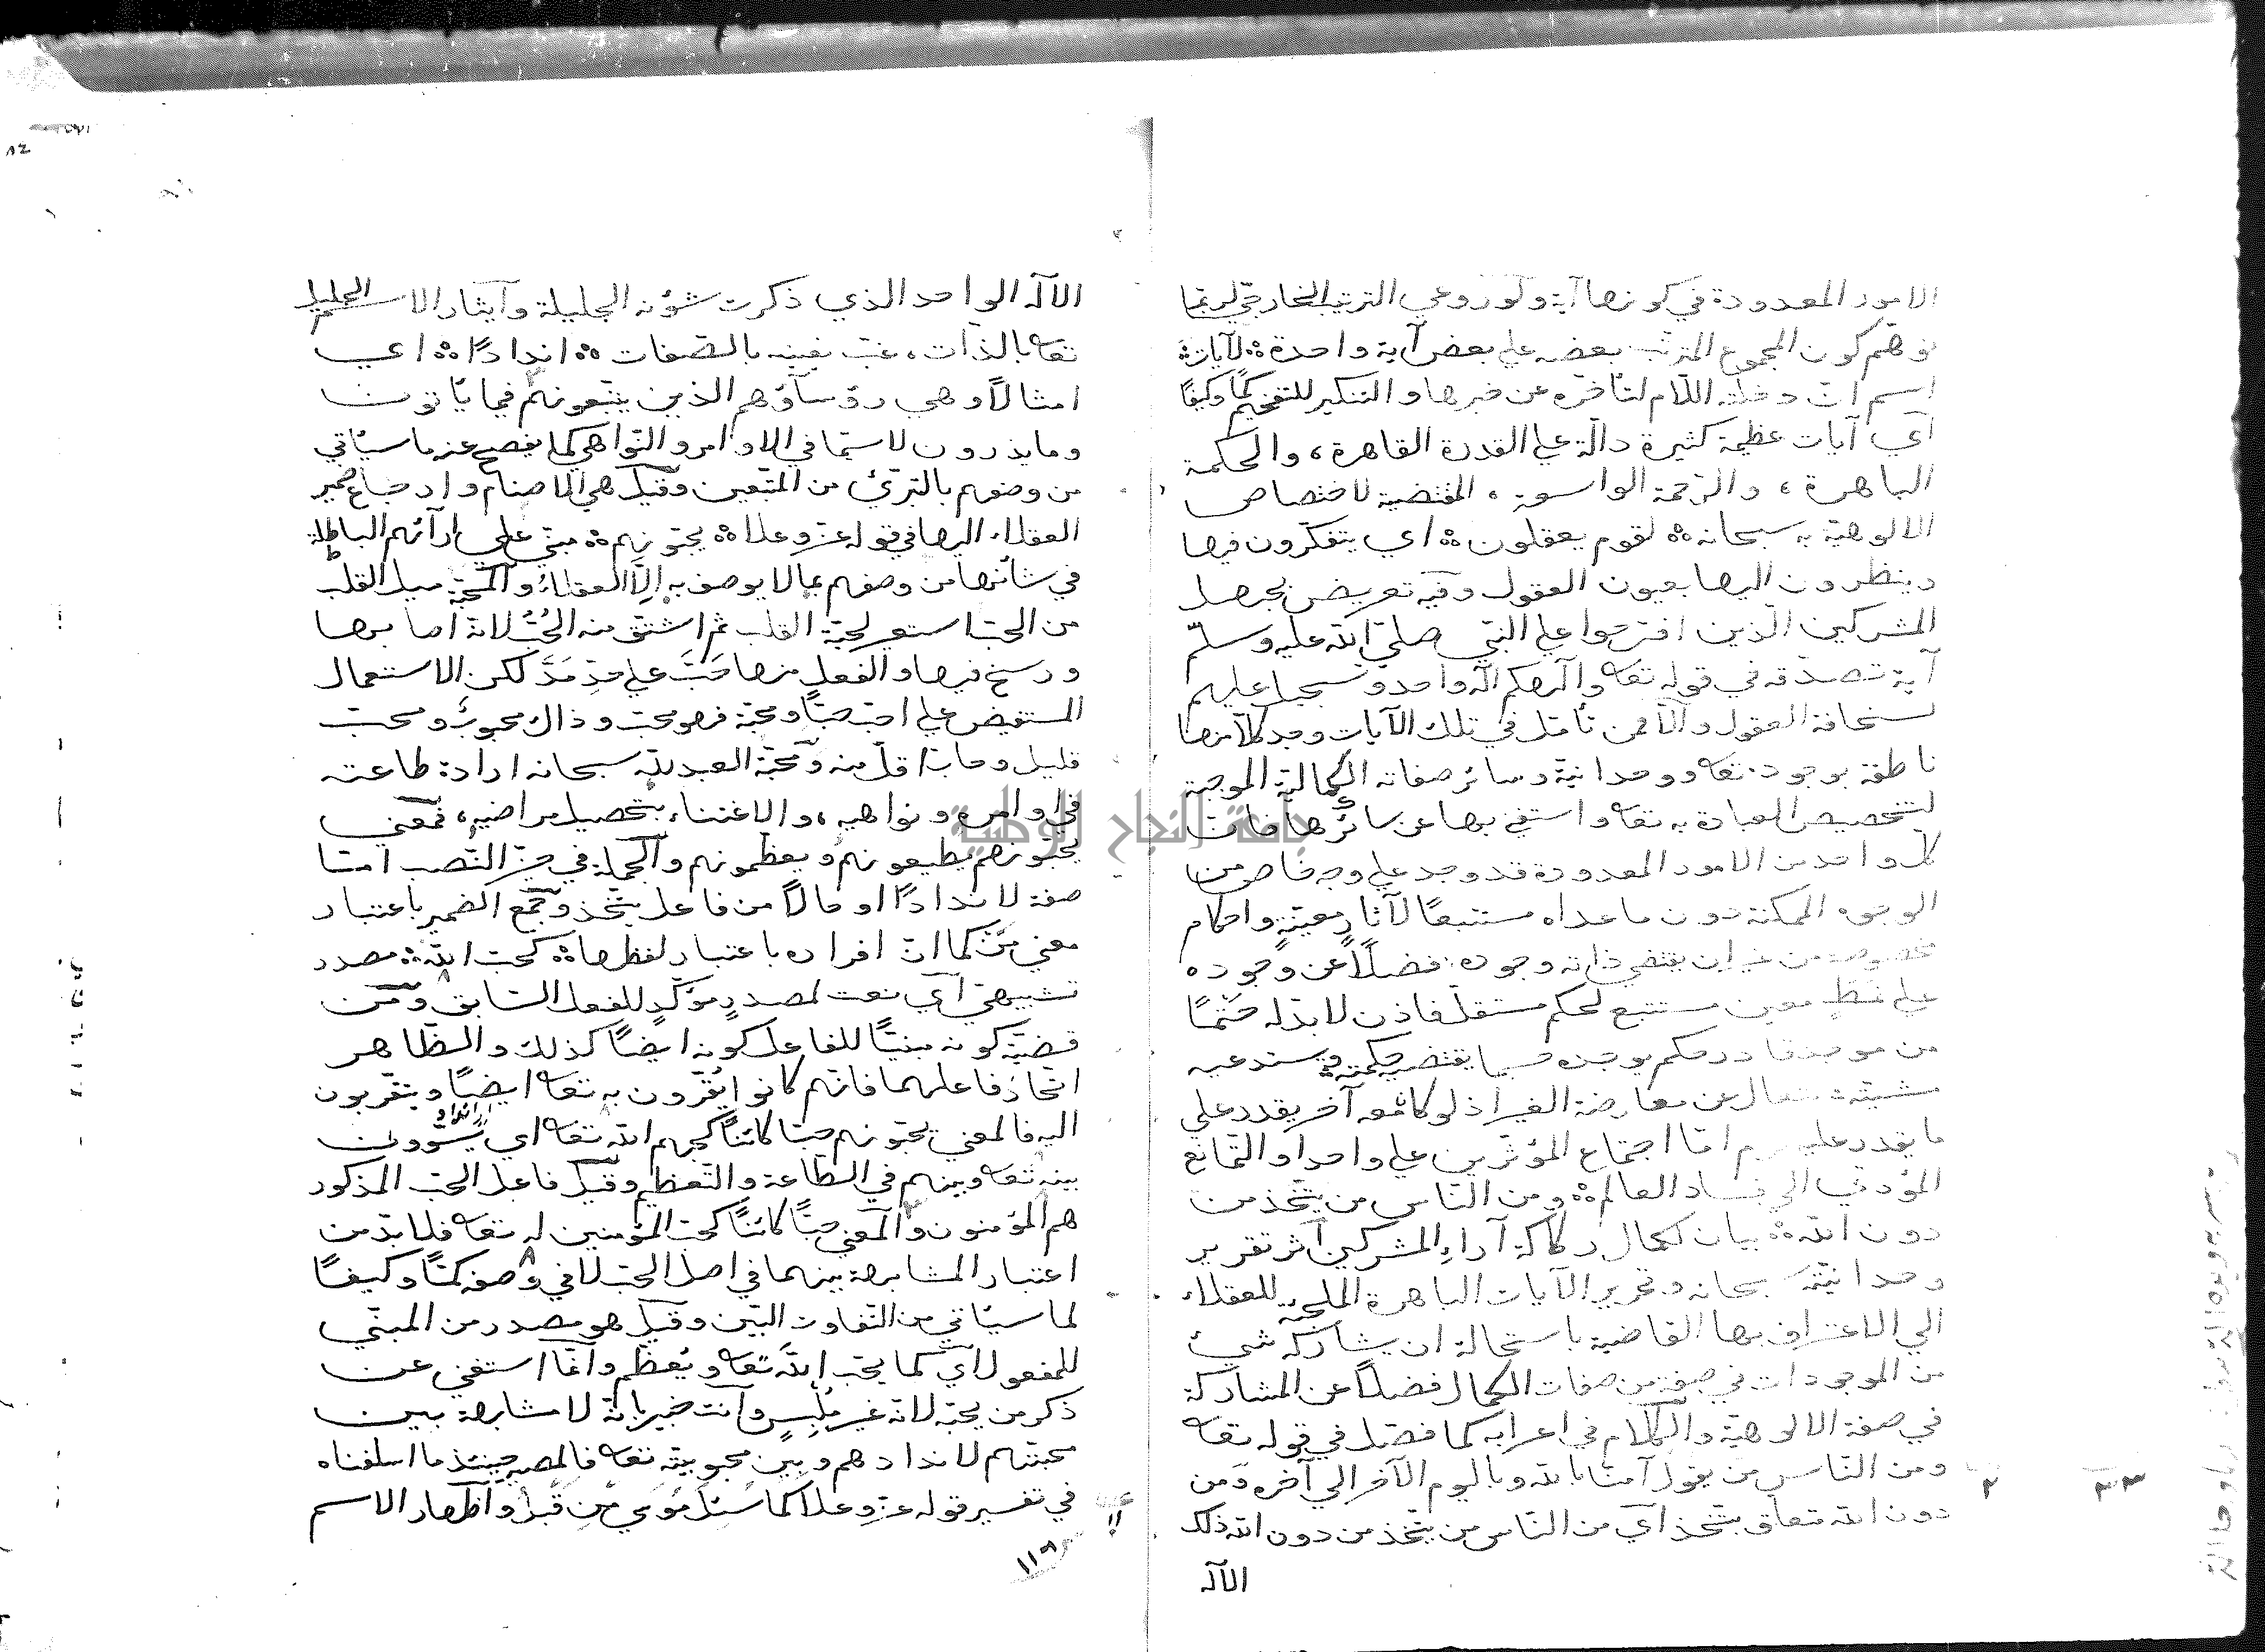 الامور المعدودة في كونها آية ولو روعي الترتيب الخارجي لربما
توهم كون المجموع المترتب بعضه على بعض آية واحدة لآيات
اسم ان دخلته اللام لتأخره عن خبرها والتنكير للتفخيم كمًا وكيفًا
أي آيات عظيمة كثيرة دالة على القدرة القاهرة، والحكمة
الباهرة، والرحمة الواسعة، المقتضية لاختصاص
الالوهية به سبحانه لقوم يعقلون اي يتفكرون فيها
وينظرون اليها بعيون العقول وفيه تعريض بجهل
المشركين الذين اقترحوا على النبي صلى الله عليه وسلم
آية تصدقه في قوله تعه والهكم اله واحد وتسجيل عليهم
بسخافة العقول والا فمن تأمل في تلك الآيات وجد كلا منها
ناطقة بوجوده تعه ووحدانيته وسائر صفاته الكمالية الموجبة
لتخصيص العبادة به تعه واستغني بها عن سائرها فان
كل واحد من الامور المعدودة قد وجد على وجه خاص من
الوجوه الممكنة دون ما عداه مستتبعًا لآثار معينة واحكام
مخصوصة من غير ان يقتضي ذاته وجوده فضلًا عن وجوده
على نمط معين مستتبع لحكم مستقل فاذن لا بد له حتمًا
من موجد قادر حكيم يوجده حسبما يقتضيه حكمته ويستدعيه
مشيته متعال عن معارضة الغير اذ لو كان معه آخر يقدر على
ما يقدر عليه لزم اما اجتماع المؤثرين على واحد او التمانع
المؤدي الى فساد العالم ومن الناس من يتخذ من
دون الله بيان لكمال ركاكة آراء المشركين اثر تقرير
وحدانيته سبحانه وتحرير الآيات الباهرة الملجئة للعقلاء
الى الاعتراف بها القاضية باستحالة ان يشاركه شيئ
من الموجودات في صفة من صفات الكمال فضلًا عن المشاركة
في صفة الالوهية والكلام في اعرابه كما فصل في قوله تعه
ومن الناس من يقول آمنا بالله وباليوم الآخر الى آخره ومن
دون الله متعلق بيتخذ أي من الناس من يتخذ من دون الله ذلك
الآله
الآله الواحد الذي ذكرت شؤنه الجليلة وآيثار الاسم الجليل
تعه بالذات، غب تعيينه بالصفات اندادًا اي
امثالًا وهي رؤساؤهم الذين يتبعونهم فيما يأتون
وما يذرون لا سيما في الاوامر والنواهي كما يفصح عنه ما سيأتي
من وصفهم بالتبرئ من المتبعين وقيل هي الاصنام وارجاع ضمير
العقلاء اليها في قوله عز وعلا يحبونهم مبني على ارآئهم الباطلة
في شأنها من وصفهم بما لا يوصف به الا العقلاء والمحبة ميل القلب
من الحب استعير لحبة القلب ثم اشتق منه الحُبّ لانه اصابها
ورسخ فيها والفعل منها حَبَّ على حدّ مَدَّ لكن الاستعمال
المستفيض على احب حبًا ومحبة فهو محب وذاك محبوب ومحب
قليل وحاب اقل منه ومحبة العبد لله سبحانه ارادة طاعته
في اوامره ونواهيه، والاعتناء بتحصيل مراضيه، فمعنى
يحبونهم يطيعونهم ويعظمونهم والجملة في حيز النصب اما
صفة لاندادًا او حالًا من فاعل يتخذ وجمع الضمير باعتبار
معنى مَن كما ان افراده باعتبار لفظها كحب الله مصدر
تشبيهي أي نعت لمصدر مؤكد للفعل السابق ومن
قضية كونه مبنيًا للفاعل كونه ايضًا كذلك والظاهر
اتحاد فاعلهما فانهم كانوا يُقرّون به تعه ايضًا ويتقربون
اليه فالمعنى يحبونهم حبًا كائنًا كحبهم الله تعه اي يسوون
بينه تعه وبينهم في الطاعة والتعظيم وقيل فاعل الحب المذكور
هم المؤمنون والمعنى حبًا كائنًا كحب المؤمنين له تعه فلا بد من
اعتبار المشابهة بينهما في اصل الحب لا في وصفه كمًا وكيفًا
لما سيأتي من التفاوت البين وقيل هو مصدر من المبني
للمفعول أي كما يحب الله تعه ويُعظم وانما استغني عن
ذكر من يحبه لانه غير مُلبِس وانت خبير بانه لا مشابهة بين
محبتهم لاندادهم وبين محبوبيته تعه فالمصير حينئذ ما اسلفناه
في تفسير قوله عز وعلا كما سُئل موسى من قبل واظهار الاسم
١١٨
جامعة النجاح الوطنية